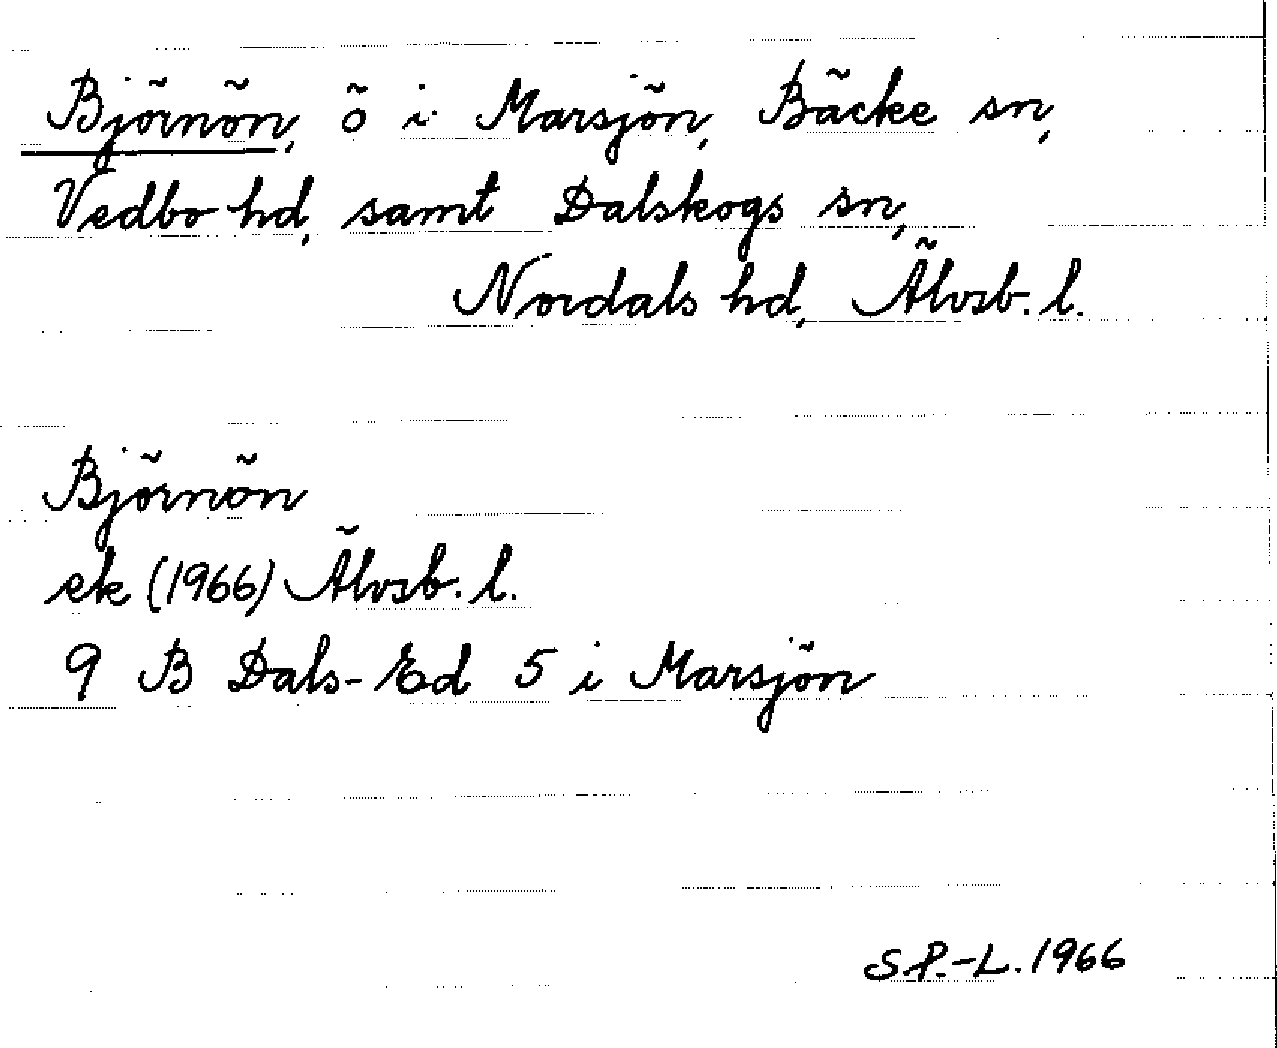 Björnön, ö i Marsjön, Bäcke sn,
Vedbo hd, samt Dalskogs sn,
Nordals hd, Älvsb. l.
Björnön
ek (1966) Älvsb. l.
9 B Dals-Ed 5 i Marsjön
S.P.-L. 1966